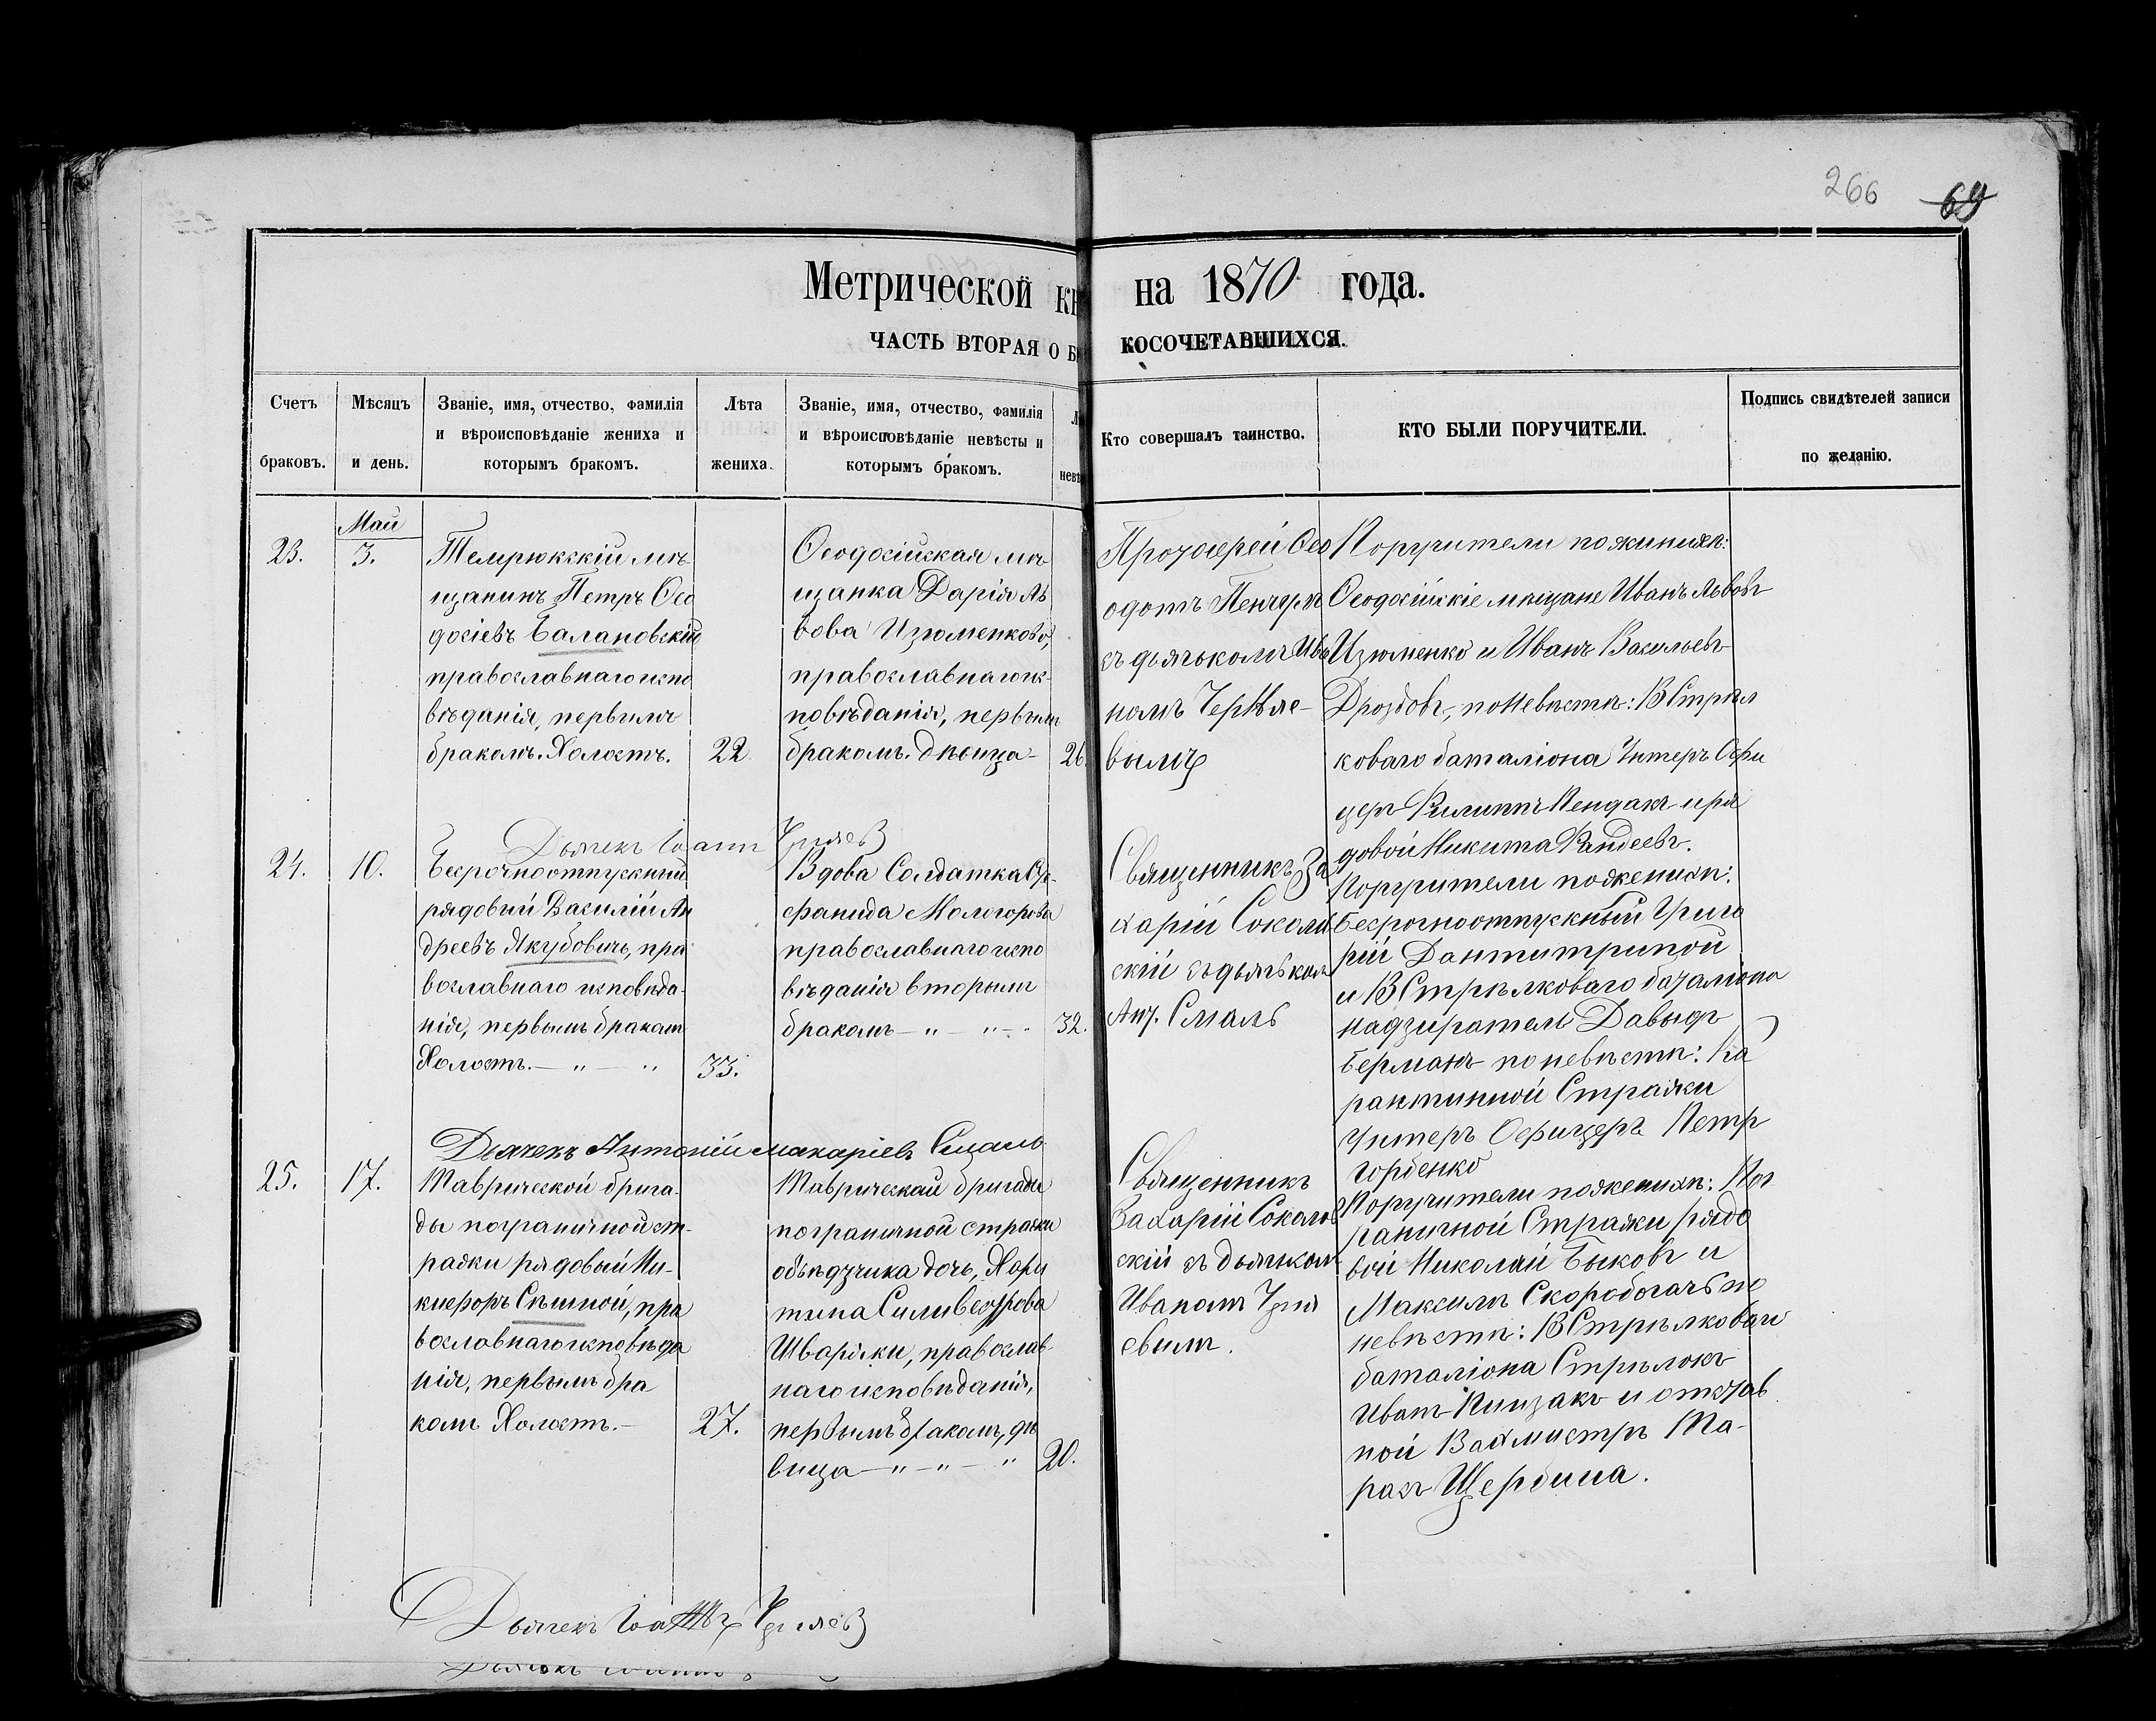 266 69
Метрической кн на 1870 года.
ЧАСТЬ ВТОРАЯ О Б КОСОЧЕТАВШИХСЯ.
Счетъ браковъ.
Мѣсяцъ и день.
Званіе, имя, отчество, фамилія
и вѣроисповѣданіе жениха и
которымъ бракомъ.
Лѣта
жениха.
Званіе, имя, отчество, фамилія
и вѣроисповѣданіе невѣсты и
которымъ бракомъ.
Л
невѣ
Кто совершалъ таинство.
КТО БЫЛИ ПОРУЧИТЕЛИ.
Подпись свидѣтелей записи
по желанію.
Май
23. 3.
Темрюкскій мѣ-
щанинъ Петръ Ѳео
досіевъ Балановскій
православнаго испо
вѣданія, первымъ
бракомъ. Холостъ. 22
Ѳеодосійская мѣ-
щанка Дарія Ль
вова Изюменково,
православнаго ис-
повѣданія, первымъ
бракомъ. дѣвица- 26
Протоіерей Ѳео
одотъ
съ дьячькомъ Ива
номъ
вымъ
Поручители по женихѣ:
Ѳеодосійскіе мѣщане Иванъ Львовъ
Изюменко и Иванъ Васильевъ
Дроздовъ, по невѣстѣ: В Стрѣл
коваго баталіона Унтеръ Офи
церъ Филиппъ Пендакъ и ря
довой Никита Фандеевъ.
Дьячекъ Іоанн
24. 10.
Безсрочноотпускный
рядовый Василій Ан
дреевъ Якубовичь, пра
вославнаго исповѣда-
нія, первымъ бракомъ
Холостъ.— „ — „ 33.
Вдова Солдатка
фанида Мологорова
православнаго испо
вѣданія вторымъ
бракомъ — „ — „ — 32.
Священникъ За
харій Соколов
скій съ дьячьком
Ант. Смаль
Поручители по женихѣ:
Безсрочноотпускный Григо
рій
и В Стрѣлковаго баталіона
надзиратель Давыдъ
Берманъ по невѣстѣ: Ка
рантинной Стражи
Унтеръ Офицеръ Петръ
Горбенко
Дьячекъ Антоній Макаріевъ Смаль
25. 17.
Таврической брига-
ды пограничной ст-
ражи рядовый Ни-
кифоръ Спѣшной, пра
вославнаго исповѣда
нія, первымъ бра
комъ Холостъ.— 27.
Таврической бригады
пограничной стражи
объѣздчика дочь, Хари
тина Силивестрова
Шварски, православ-
наго исповѣданія,
первымъ бракомъ, дѣ
вица — „ — „ — „ 20.
Священникъ
Захарій Соколов
скій съ дьячком
Иваномъ
евымъ.
Поручители по женихѣ: Пог
раничной Стражи рядо
вой Николай Быковъ и
Максимъ Скоробогачь по
невѣстѣ: В Стрѣлковаго
баталіона Стрѣлокъ
Иванъ и отстав
ной Вахмистръ Та-
расъ Щербина.
Дьячекъ